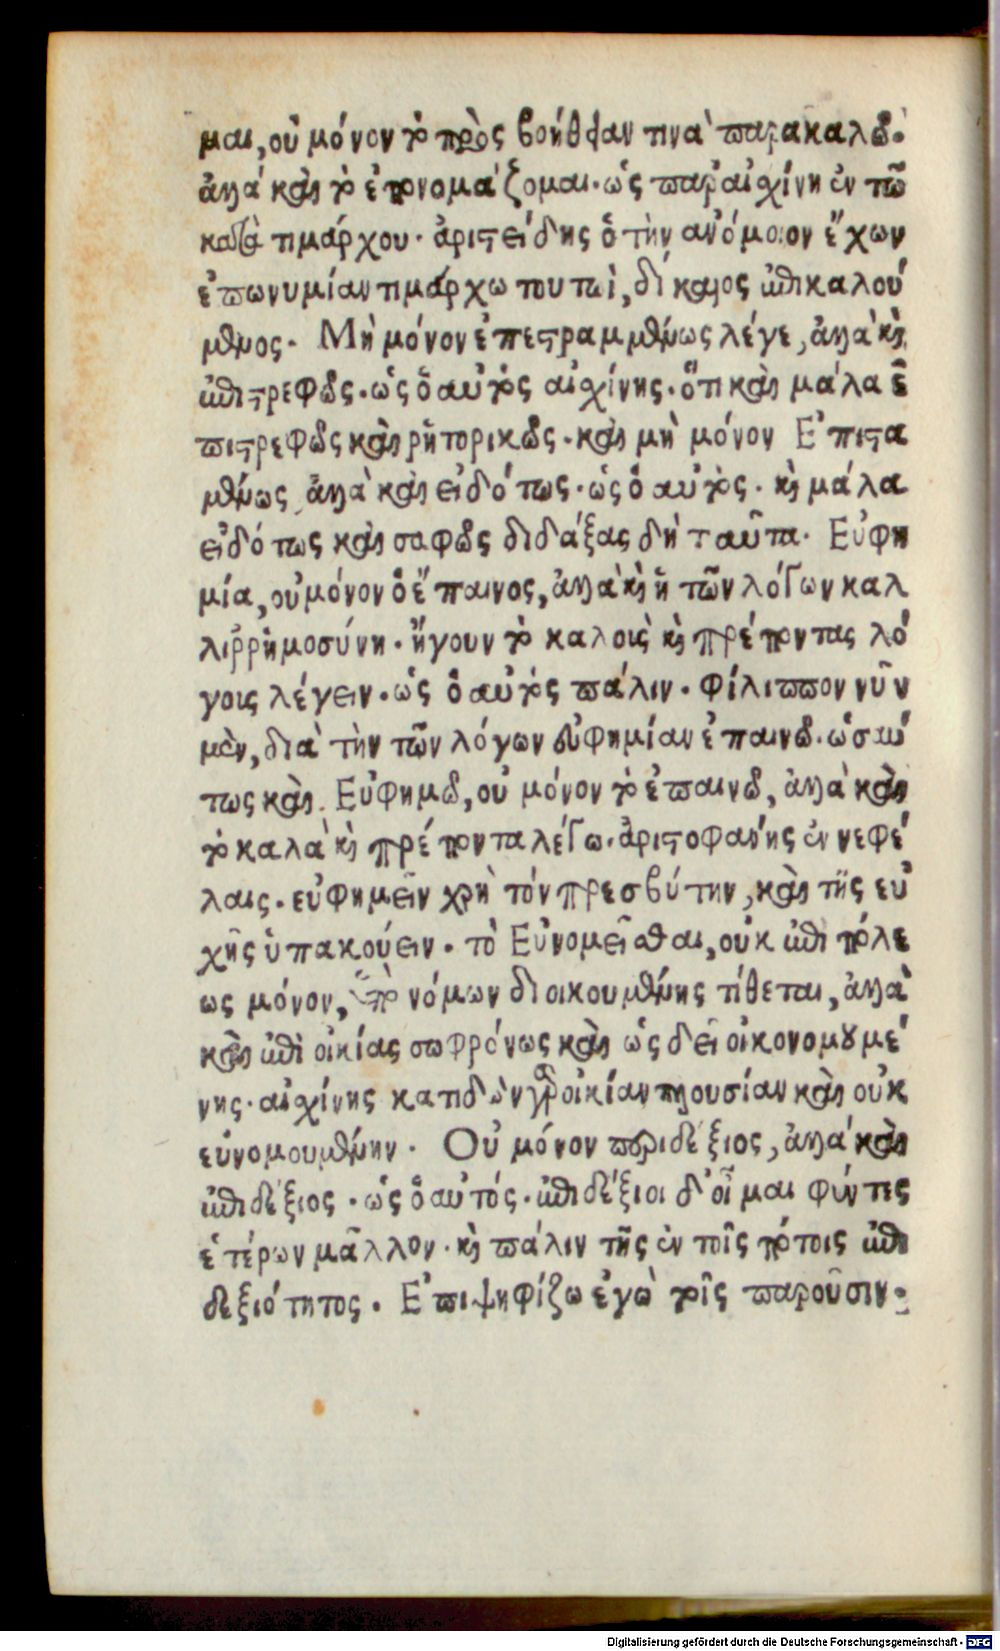 μαι, οὐ μόνον τὸ πρὸς βοήθειαν τινὰ παρακαλῶ.
ἀλλὰ καὶ τὸ ἐπονομάζομαι. ὡς παρ' αἰσχίνῃ ἐν τῶ
κατὰ τιμάρχου. ἀριστείδης ὁ τὴν ἀνόμοιον ἔχων
ἐπωνυμίαν τιμάρχω τουτωὶ, δίκαιος ἐπικαλού
μενος. Μὴ μόνον ἐπεστραμμένως λέγε, ἀλλὰ καὶ
ἐπιστρεφῶς. ὡς ὁ αὐτὸς αἰσχίνης. ὅτι καὶ μάλα ἐ
πιστρεφῶς καὶ ῥητορικῶς. καὶ μὴ μόνον Ἐπιστα
μένως, ἀλλὰ καὶ εἰδότως. ὡς ὁ αὐτὸς. καὶ μάλα
εἰδότως καὶ σαφῶς διδάξας δὴ ταῦτα. Εὐφη
μία, οὐ μόνον ὁ ἔπαινος, ἀλλὰ καὶ ἡ τῶν λόγων καλ
λιρρημοσύνη. ἤγουν τὸ καλοῖς καὶ πρέποντας λό
γοις λέγειν. ὡς ὁ αὐτὸς πάλιν. φίλιππον νῦν
μὲν, διὰ τὴν τῶν λόγων εὐφημίαν ἐπαινῶ. ὡσαύ
τως καὶ. Εὐφημῶ, οὐ μόνον τὸ ἐπαινῶ, ἀλλὰ καὶ
τὸ καλὰ καὶ πρέποντα λέγω. ἀριστοφάνης ἐν νεφέ
λαις. εὐφημεῖν χρὴ τὸν πρεσβύτην, καὶ τῆς εὐ
χῆς ὑπακούειν. τὸ Εὐνομεῖσθαι, οὐκ ἐπὶ πόλε
ως μόνον, νόμων διοικουμένης τίθεται, ἀλλὰ
καὶ ἐπὶ οἰκίας σωφρόνως καὶ ὡς δεῖ οἰκονομουμέ
νης. αἰσχίνης κατιδὼν γὰρ οἰκίαν πλουσίαν καὶ οὐκ
εὐνομουμένην. Οὐ μόνον περιδέξιος, ἀλλὰ καὶ
ἐπιδέξιος. ὡς ὁ αὐτός. ἐπιδέξιοι δ' οἶμαι φύντες
ἑτέρων μᾶλλον. καὶ πάλιν τῆς ἐν τοῖς πότοις ἐπι
δεξιότητος. Ἐπιψηφίζω ἐγὼ τοῖς παροῦσιν.
Digitalisierung gefördert durch die Deutsche Forschungsgemeinschaft - DFG